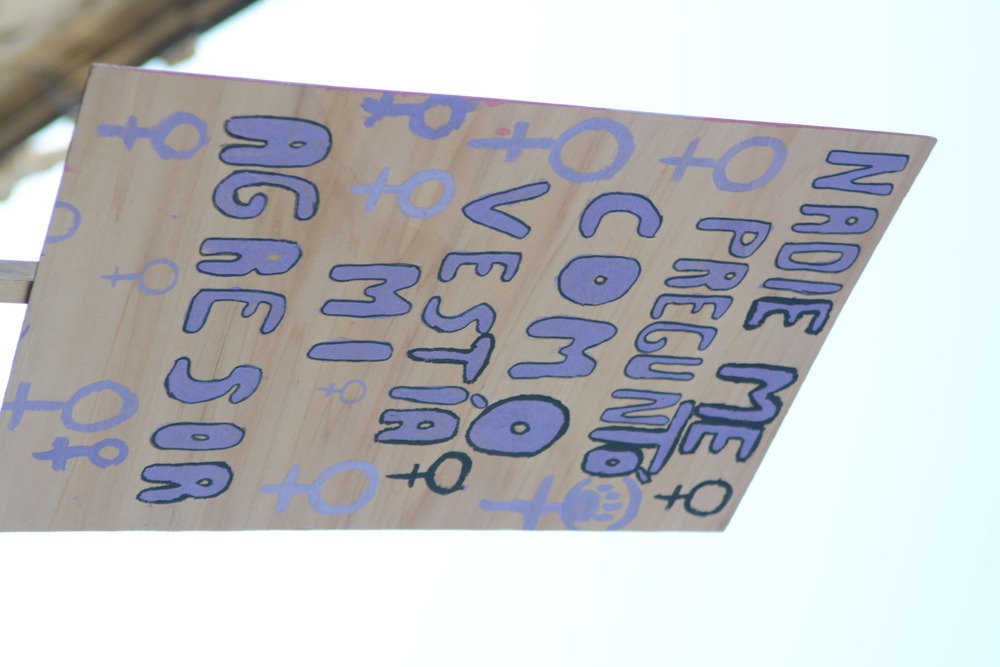 NADIE ME
PREGUNTÓ
COMO
VESTÍA
MI
AGRESOR